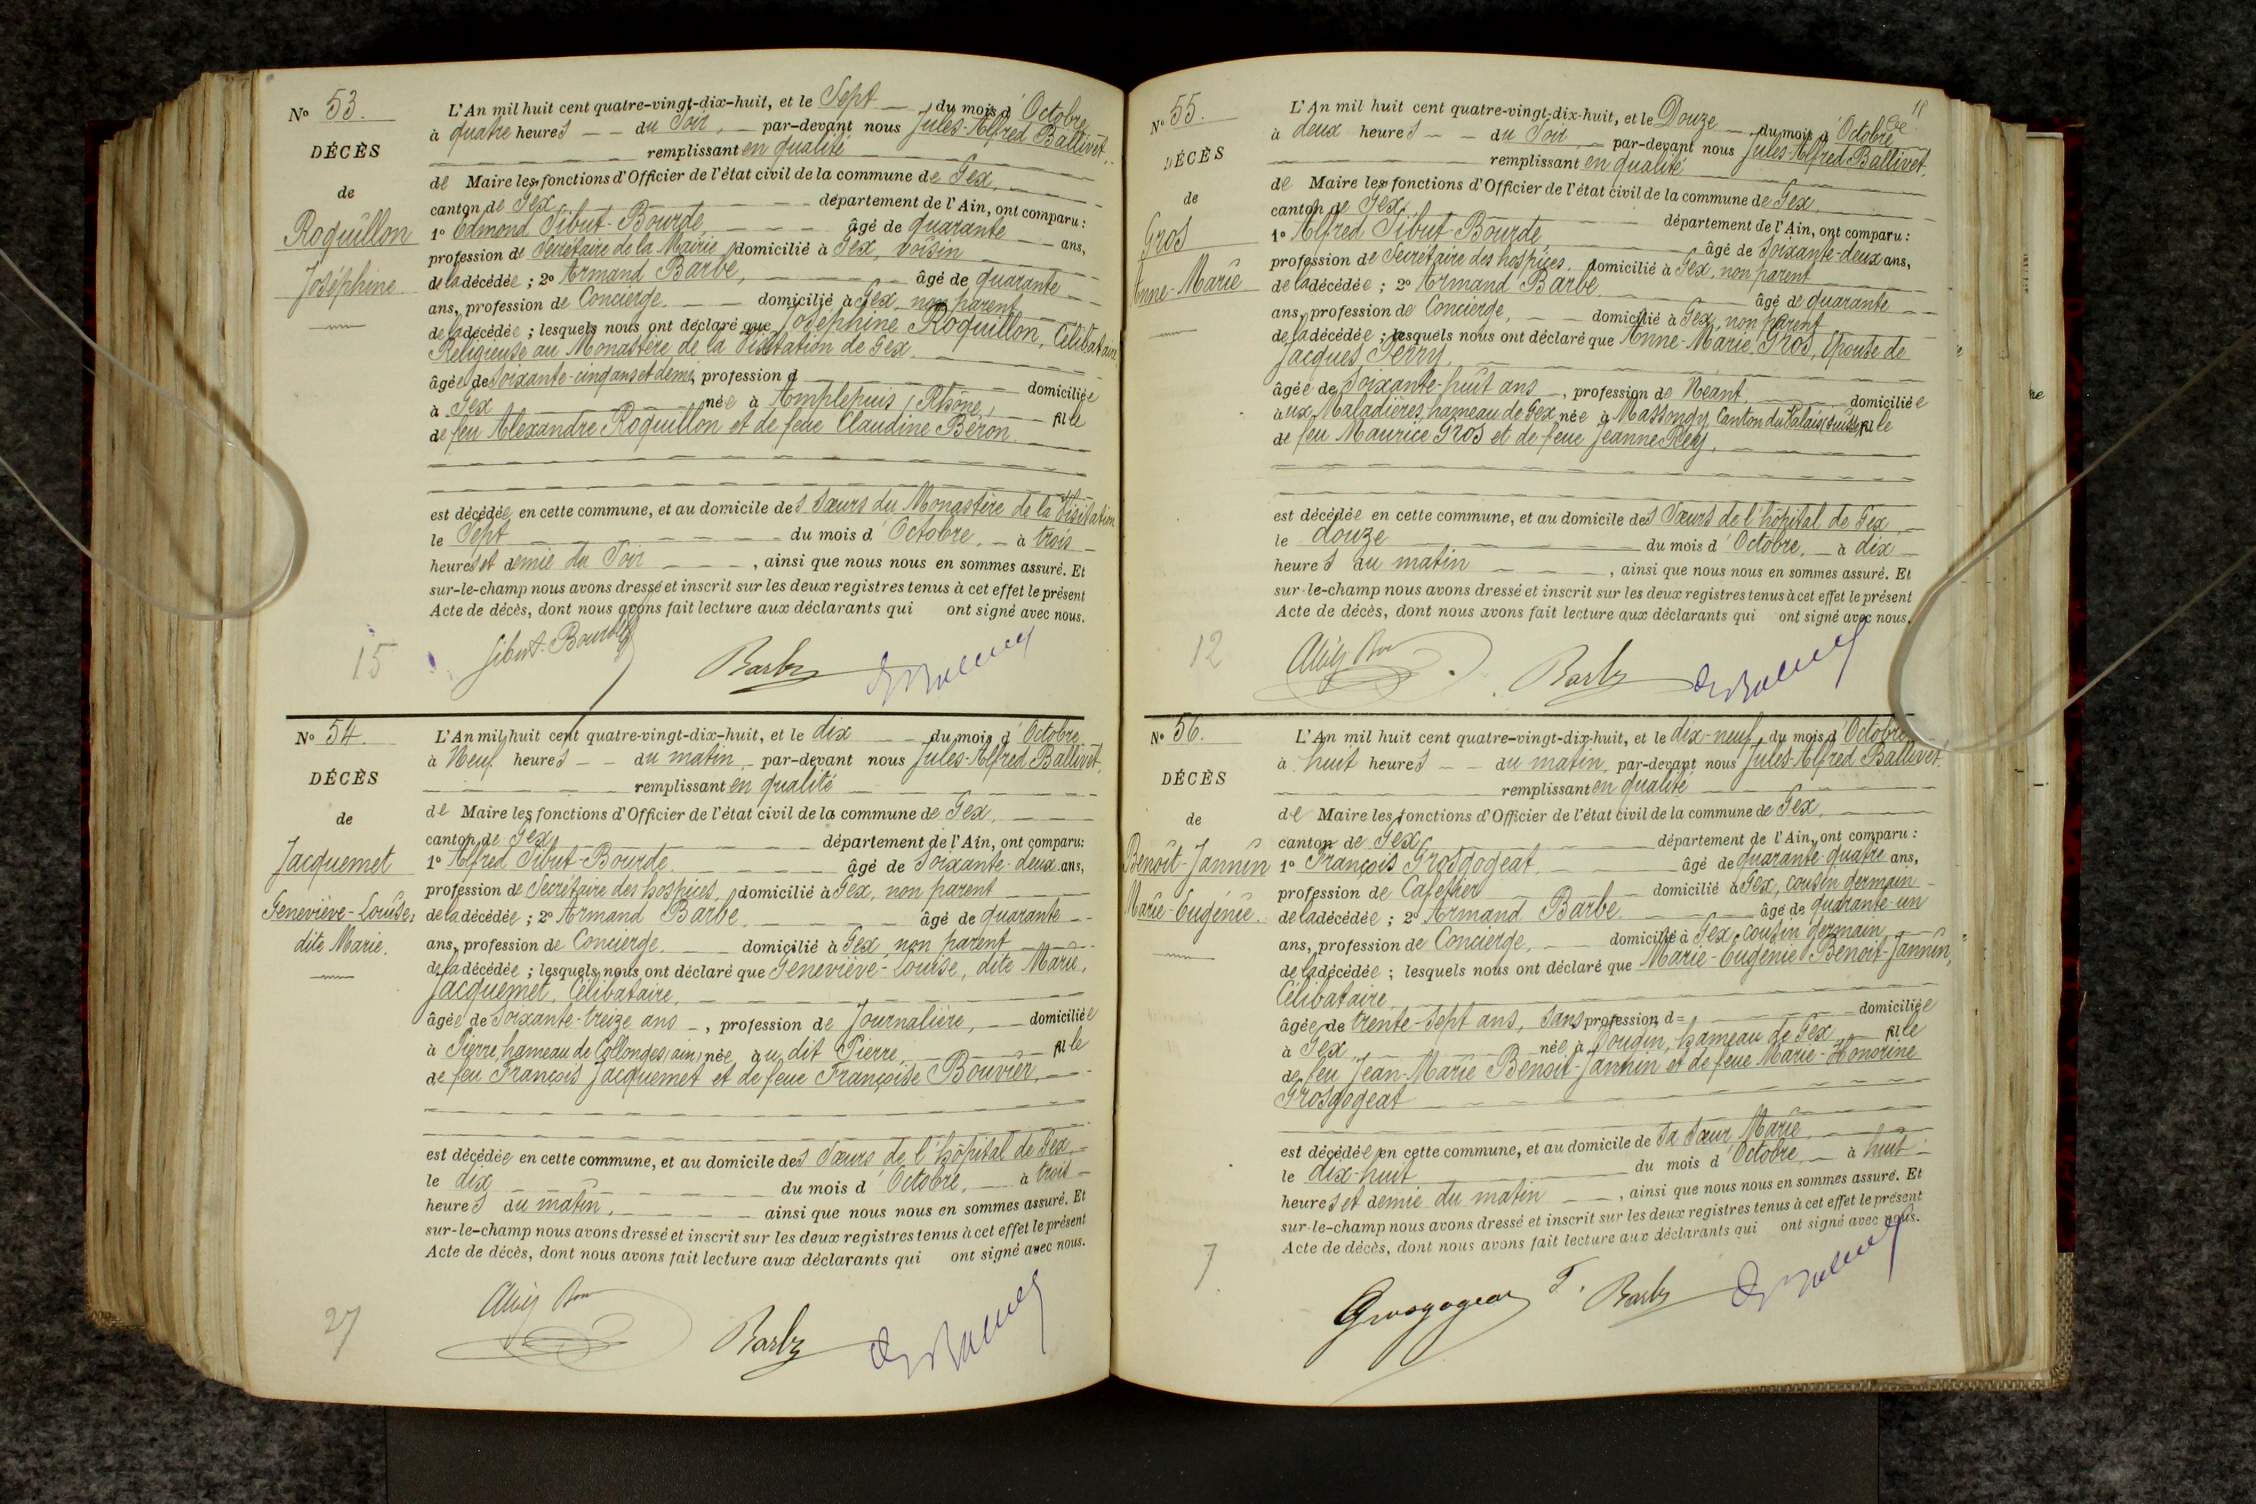 N° 53.
DÉCÈS
de
Roquillon
Joséphine
L'An mil huit cent quatre-vingt-dix-huit, et le Sept du mois d'Octobre
à quatre heures du Soir, par-devant nous Jules-Alfred Ballivet,
remplissant en qualité
de Maire les fonctions d'Officier de l'état civil de la commune de Gex,
canton de Gex, département de l'Ain, ont comparu :
1° Edmond Sibut-Bourde, âgé de quarante ans,
profession de Secrétaire de la Mairie, domicilié à Gex, voisin
de la décédée ; 2° Armand Barbe, âgé de quarante
ans, profession de Concierge domicilié à Gex, non parent
de la décédée ; lesquels nous ont déclaré que Joséphine Roquillon, Célibataire
Religieuse au Monastère de la Visitation de Gex
âgée de Soixante-cinq ans et demi, profession d domiciliée
à Gex née à Amplepuis (Rhône,) fille
de feu Alexandre Roquillon et de feue Claudine Béron
est décédée en cette commune, et au domicile des Sœurs du Monastère de la Visitation
le Sept du mois d'Octobre, à trois
heures et demie du Soir, ainsi que nous nous en sommes assuré. Et
sur-le-champ nous avons dressé et inscrit sur les deux registres tenus à cet effet le présent
Acte de décès, dont nous avons fait lecture aux déclarants qui ont signé avec nous.
15
Sibut-Bourde Barbe
N° 54.
DÉCÈS
de
Jacquemet
Geneviève-Louise,
dite Marie.
L'An mil huit cent quatre-vingt-dix-huit, et le dix du mois d'Octobre
à Neuf heures du matin, par-devant nous Jules-Alfred Ballivet,
remplissant en qualité
de Maire les fonctions d'Officier de l'état civil de la commune de Gex,
canton de Gex, département de l'Ain, ont comparu:
1° Alfred Sibut-Bourde, âgé de Soixante-deux ans,
profession de Secrétaire des hospices, domicilié à Gex, non parent
de la décédée ; 2° Armand Barbe âgé de quarante
ans, profession de Concierge domicilié à Gex, non parent
de la décédée ; lesquels nous ont déclaré que Geneviève-Louise, dite Marie,
Jacquemet, Célibataire,
âgée de Soixante-treize ans, profession de Journalière, domiciliée
à Pierre, hameau de Collonges (ain) née au dit Pierre, fille
de feu François Jacquemet et de feue Françoise Bouvier,
est décédée en cette commune, et au domicile des Sœurs de l'hôpital de Gex
le dix du mois d'Octobre, à trois
heures du matin, ainsi que nous nous en sommes assuré. Et
sur-le-champ nous avons dressé et inscrit sur les deux registres tenus à cet effet le présent
Acte de décès, dont nous avons fait lecture aux déclarants qui ont signé avec nous.
27
Barbe
N° 55.
DÉCÈS
de
Gros
Anne-Marie
18
L'An mil huit cent quatre-vingt-dix-huit, et le Douze du mois d'Octobre
à deux heures du Soir, par-devant nous Jules-Alfred Ballivet,
remplissant en qualité
de Maire les fonctions d'Officier de l'état civil de la commune de Gex,
canton de Gex, département de l'Ain, ont comparu :
1° Alfred Sibut-Bourde âgé de Soixante-deux ans,
profession de Secrétaire des hospices, domicilié à Gex, non parent
de la décédée ; 2° Armand Barbe âgé de quarante
ans, profession de Concierge, domicilié à Gex, non parent
de la décédée ; lesquels nous ont déclaré que Anne-Marie Gros, Epouse de
Jacques
âgée de Soixante-huit ans, profession de Néant domiciliée
aux Maladières, hameau de Gex, née à Massongy, Canton du Valais (Suisse) fille
de feu Maurice Gros et de feue Jeanne Rey,
est décédée en cette commune, et au domicile des Sœurs de l'hôpital de Gex
le douze du mois d'Octobre, à dix
heures du matin, ainsi que nous nous en sommes assuré. Et
sur-le-champ nous avons dressé et inscrit sur les deux registres tenus à cet effet le présent
Acte de décès, dont nous avons fait lecture aux déclarants qui ont signé avec nous.
12
Barbe
N° 56.
DÉCÈS
de
Benoit-Jannin
Marie-Eugénie.
L'An mil huit cent quatre-vingt-dix-huit, et le dix-neuf du mois d'Octobre
à huit heures du matin, par-devant nous Jules-Alfred Ballivet,
remplissant en qualité
de Maire les fonctions d'Officier de l'état civil de la commune de Gex,
canton de Gex, département de l'Ain, ont comparu :
1° François Grosgogeat âgé de quarante-quatre ans,
profession de Cafetier domicilié à Gex, cousin germain
de la décédée ; 2° Armand Barbe âgé de quarante-un
ans, profession de Concierge, domicilié à Gex cousin germain
de la décédée ; lesquels nous ont déclaré que Marie-Eugénie Benoit-Jannin,
Célibataire
âgée de trente-sept ans, sans profession d domiciliée
à Gex née à hameau de Gex fille
de feu Jean-Marie Benoit-Jannin et de feue Marie-Honorine
Grosgogeat
est décédée en cette commune, et au domicile de Sa Sœur Marie
le dix-huit du mois d'Octobre à huit
heures et demie du matin, ainsi que nous nous en sommes assuré. Et
sur-le-champ nous avons dressé et inscrit sur les deux registres tenus à cet effet le présent
Acte de décès, dont nous avons fait lecture aux déclarants qui ont signé avec nous.
7
Grosgogeat F. Barbe